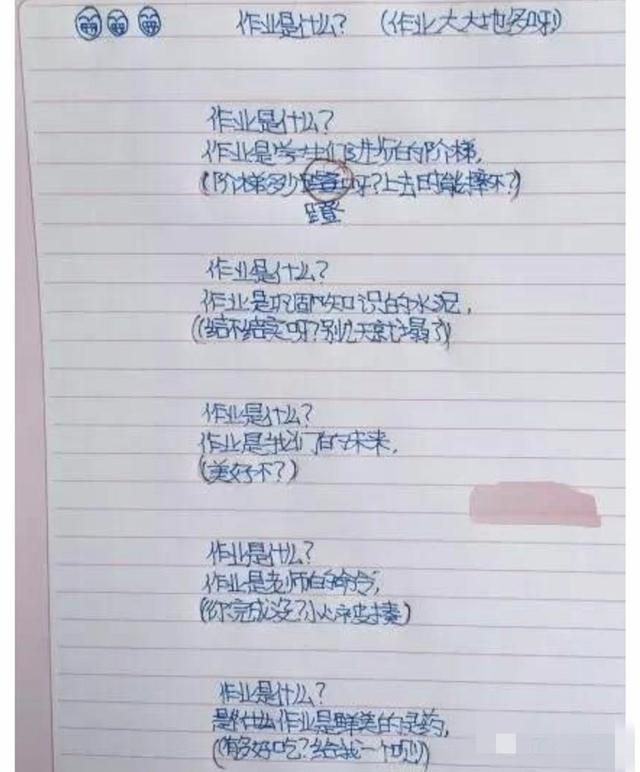 作业是什么? (作业大大地多呀!)
作业是什么?
作业是学生们进步的阶梯,
(阶梯多少蹬呀?上去时能摔不?)
蹬
作业是什么?
作业是巩固知识的水泥,
(结不结实呀?别几天就塌了)
作业是什么?
作业是我们的未来,
(美好不?)
作业是什么?
作业是老师的命令,
(你完成没?小心被揍)
作业是什么?
作业是的灵药,
(有多好吃?给我一个呗!)